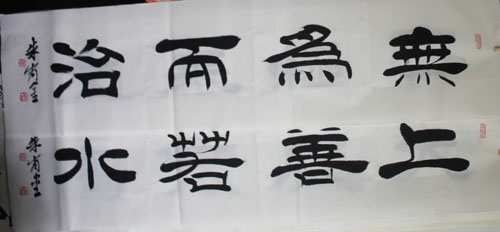 無為而治
上善若水